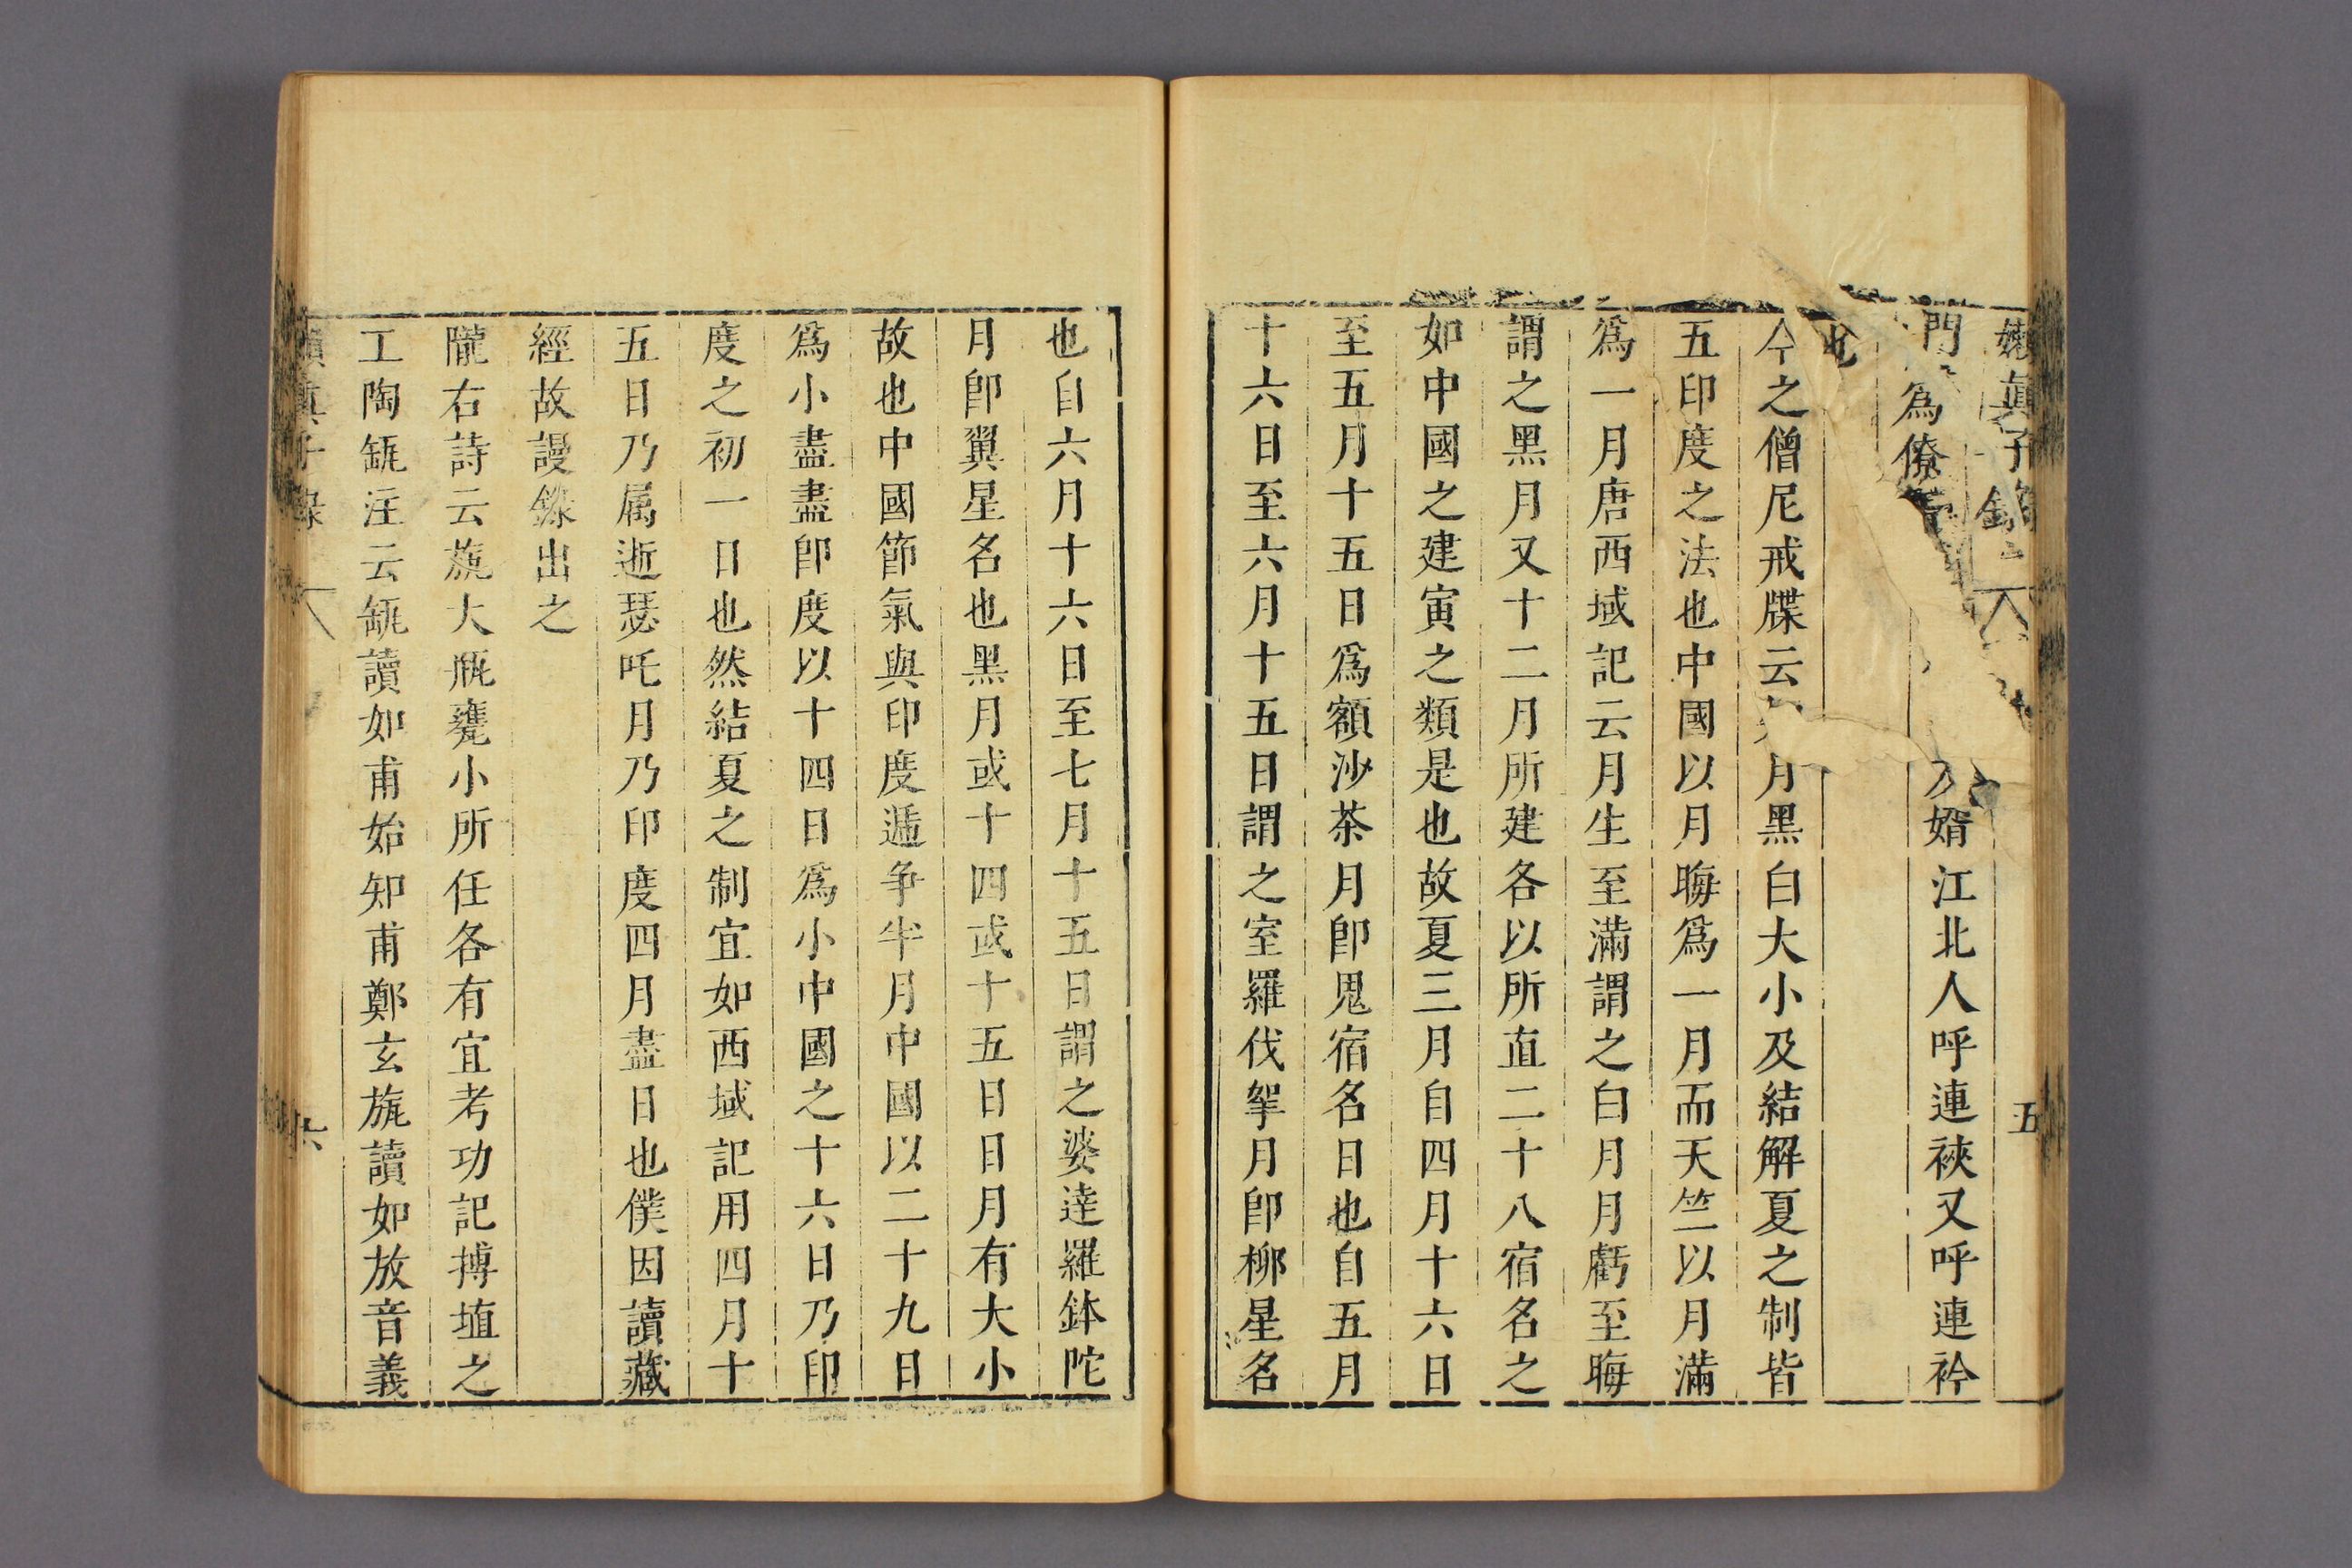 嬾真子錄 五
門 為僚 婿江北人呼連袂又呼連衿
也
今之僧尼戒牒云 月黑白大小及結解夏之制皆
五印度之法也中國以月晦爲一月而天竺以月滿
爲一月唐西域記云月生至滿謂之白月月虧至晦
謂之黑月又十二月所建各以所直二十八宿名之
如中國之建寅之類是也故夏三月自四月十六日
至五月十五日爲額沙茶月卽鬼宿名日也自五月
十六日至六月十五日謂之室羅伐拏月卽柳星名
也自六月十六日至七月十五日謂之婆達羅鉢陀
月卽翼星名也黑月或十四或十五日日月有大小
故也中國節氣與印度遞争半月中國以二十九日
爲小盡盡卽度以十四日爲小中國之十六日乃印
度之初一日也然結夏之制宜如西域記用四月十
五日乃属逝瑟吒月乃印度四月盡日也僕因讀藏
經故謾錄出之
隴右詩云旊大瓶甕小所任各有宜考功記搏埴之
工陶瓬注云瓬讀如甫始知甫鄭玄旊讀如放音義
真子錄 六